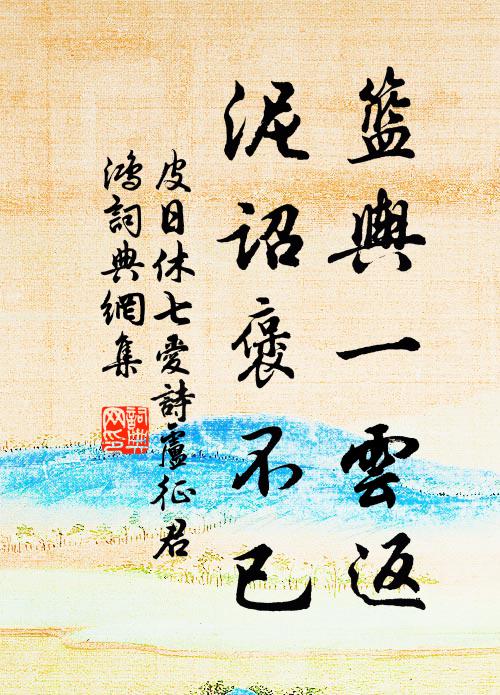 籃輿一雲返
泥詔褒不已
皮日休七愛詩盧征君
鴻詞典網集
詞典
網印